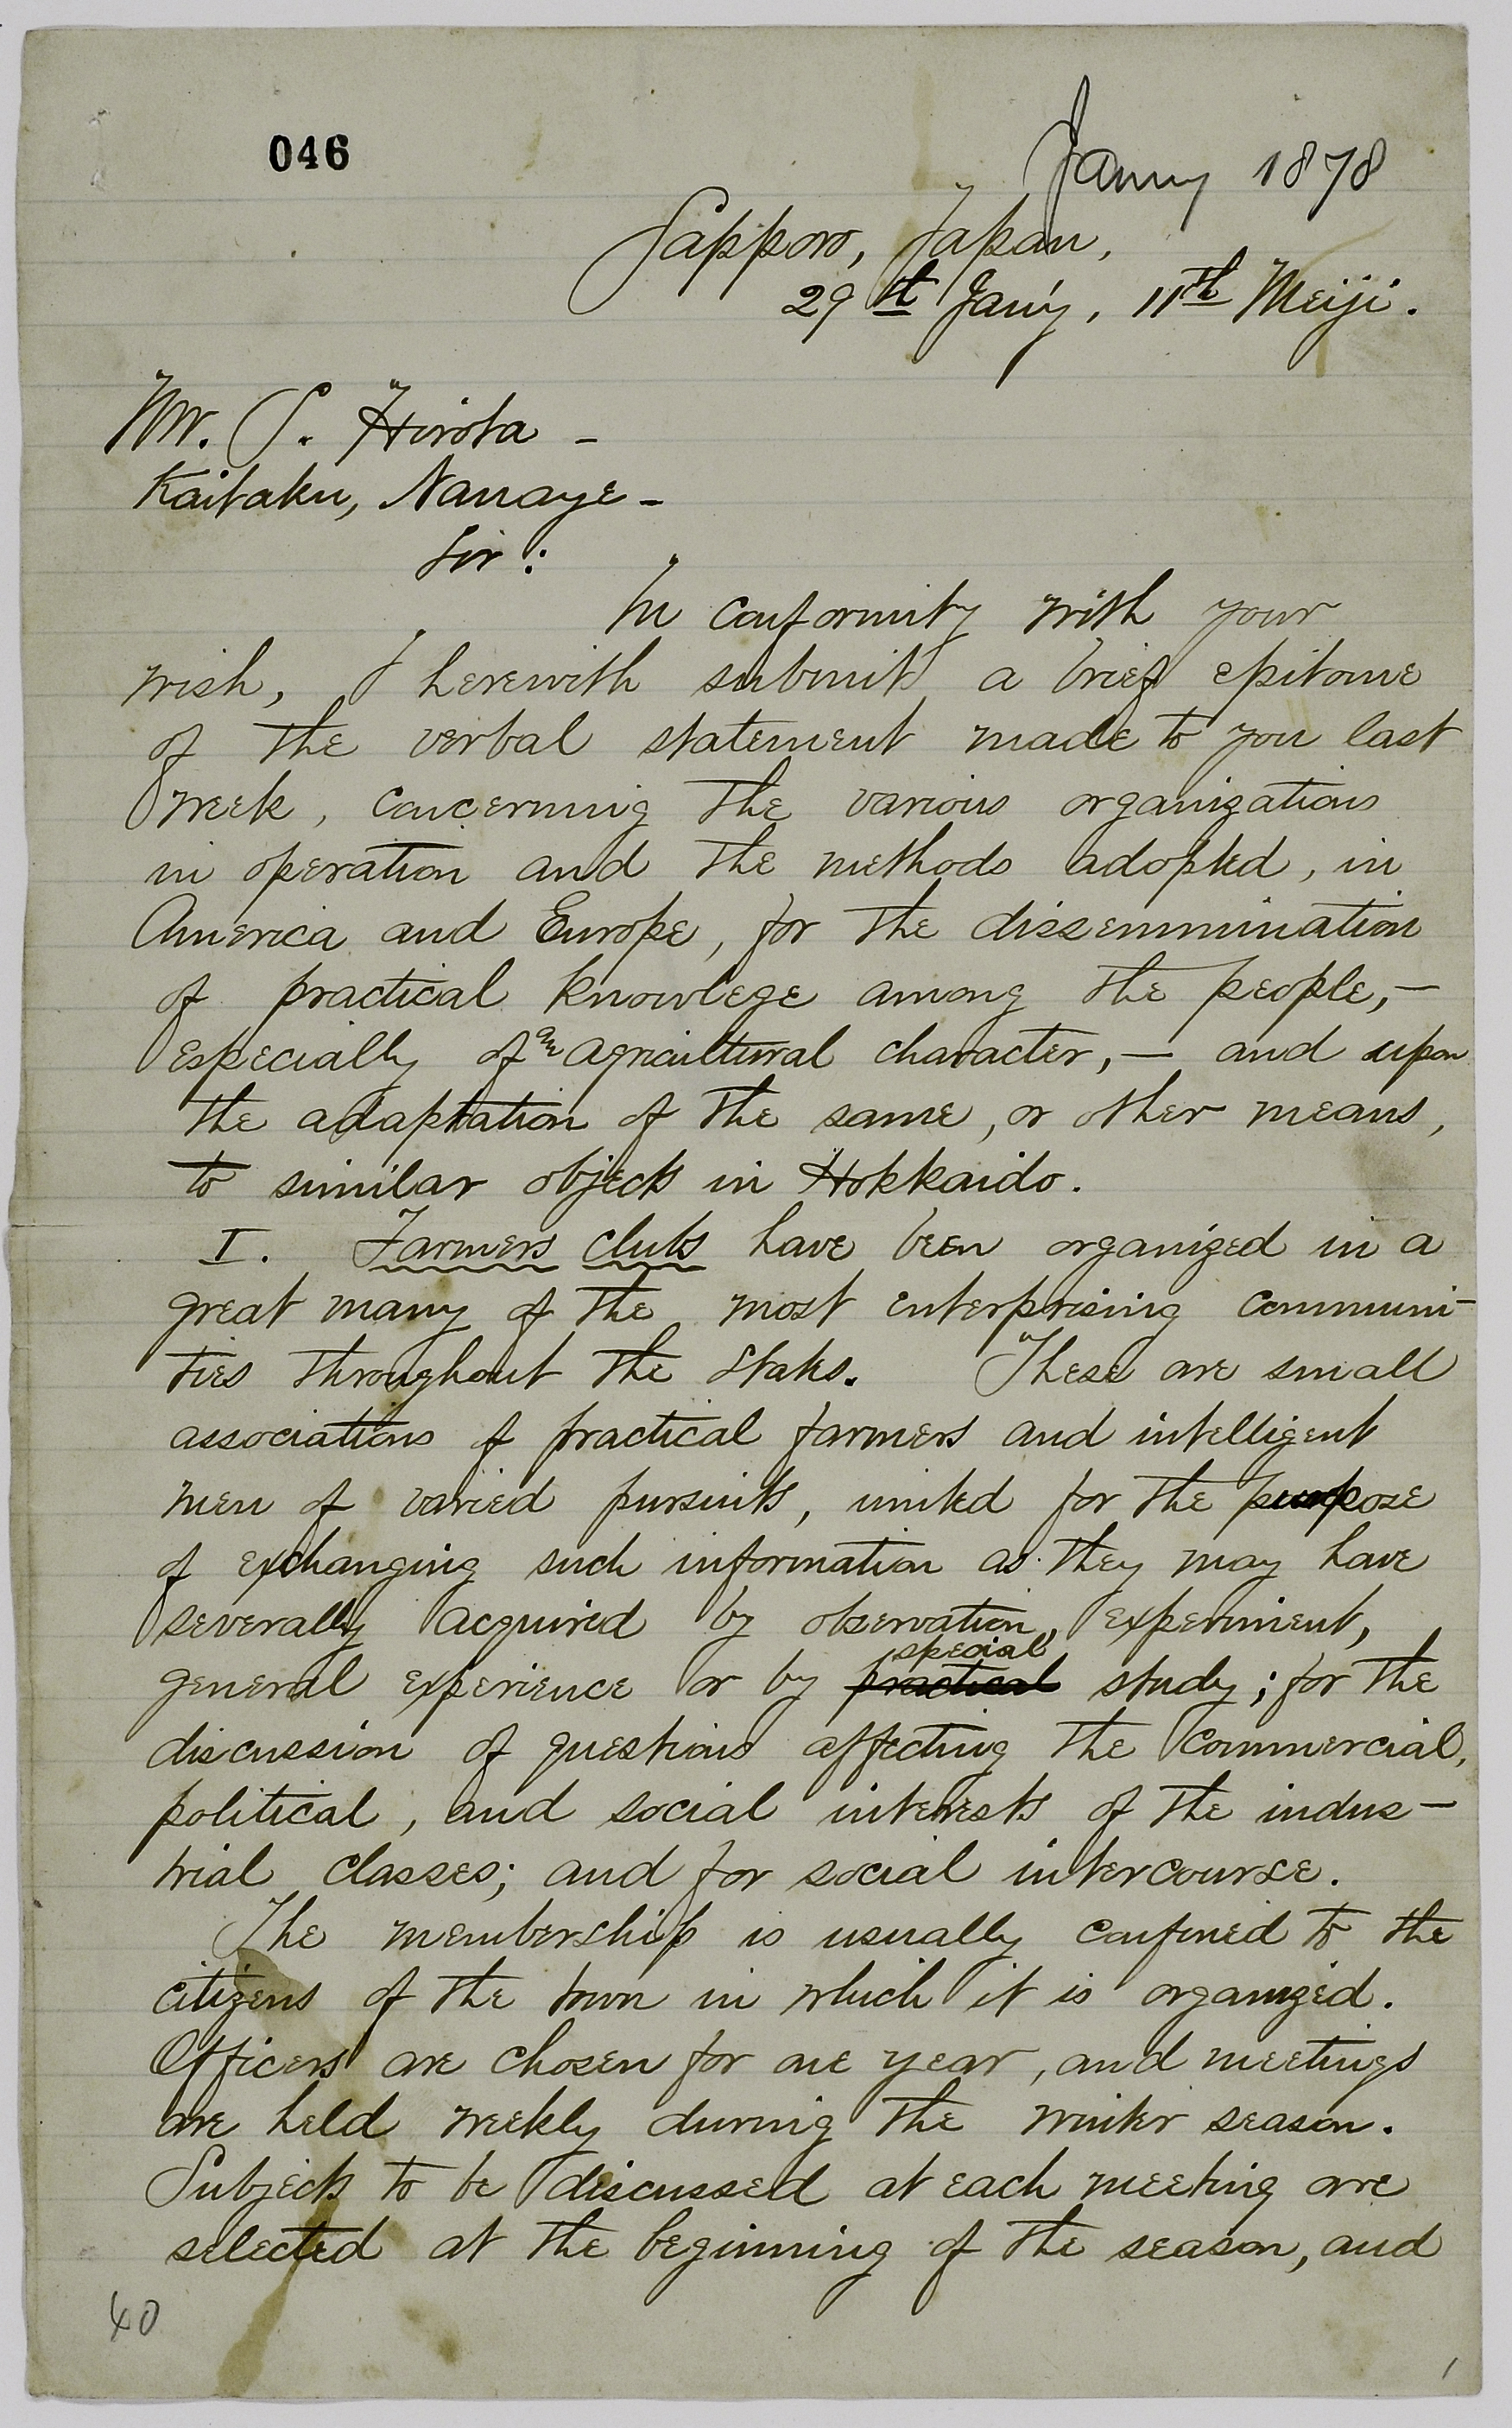 046
Jany 1878
Sapporo, Japan,
29th Jan'y, 11th Meiji.
Mr. S. Hirota –
Kaitaku, Nanaye –
Sir:
In conformity with your
wish, I herewith submit a brief epitome
of the verbal statement made to you last
week, concerning the various organizations
in operation and the methods adopted, in
America and Europe, for the dissemmination
of practical knowlege among the people, –
especially of an agricultural character, – and upon
the adaptation of the same, or other means,
to similar objects in Hokkaido.
I. Farmers clubs have been organized in a
great many of the most enterprising communi-
ties throughout the States. These are small
associations of practical farmers and intelligent
men of varied pursuits, united for the purpose
of exchanging such information as they may have
severally acquired by observation, experiment,
general experience or by practical special study; for the
discussion of questions affecting the commercial,
political, and social interests of the indus-
trial classes; and for social intercourse.
The membership is usually confined to the
citizens of the town in which it is organized.
Officers are chosen for one year, and meetings
are held weekly during the winter season.
Subjects to be discussed at each meeting are
selected at the beginning of the season, and
40
1